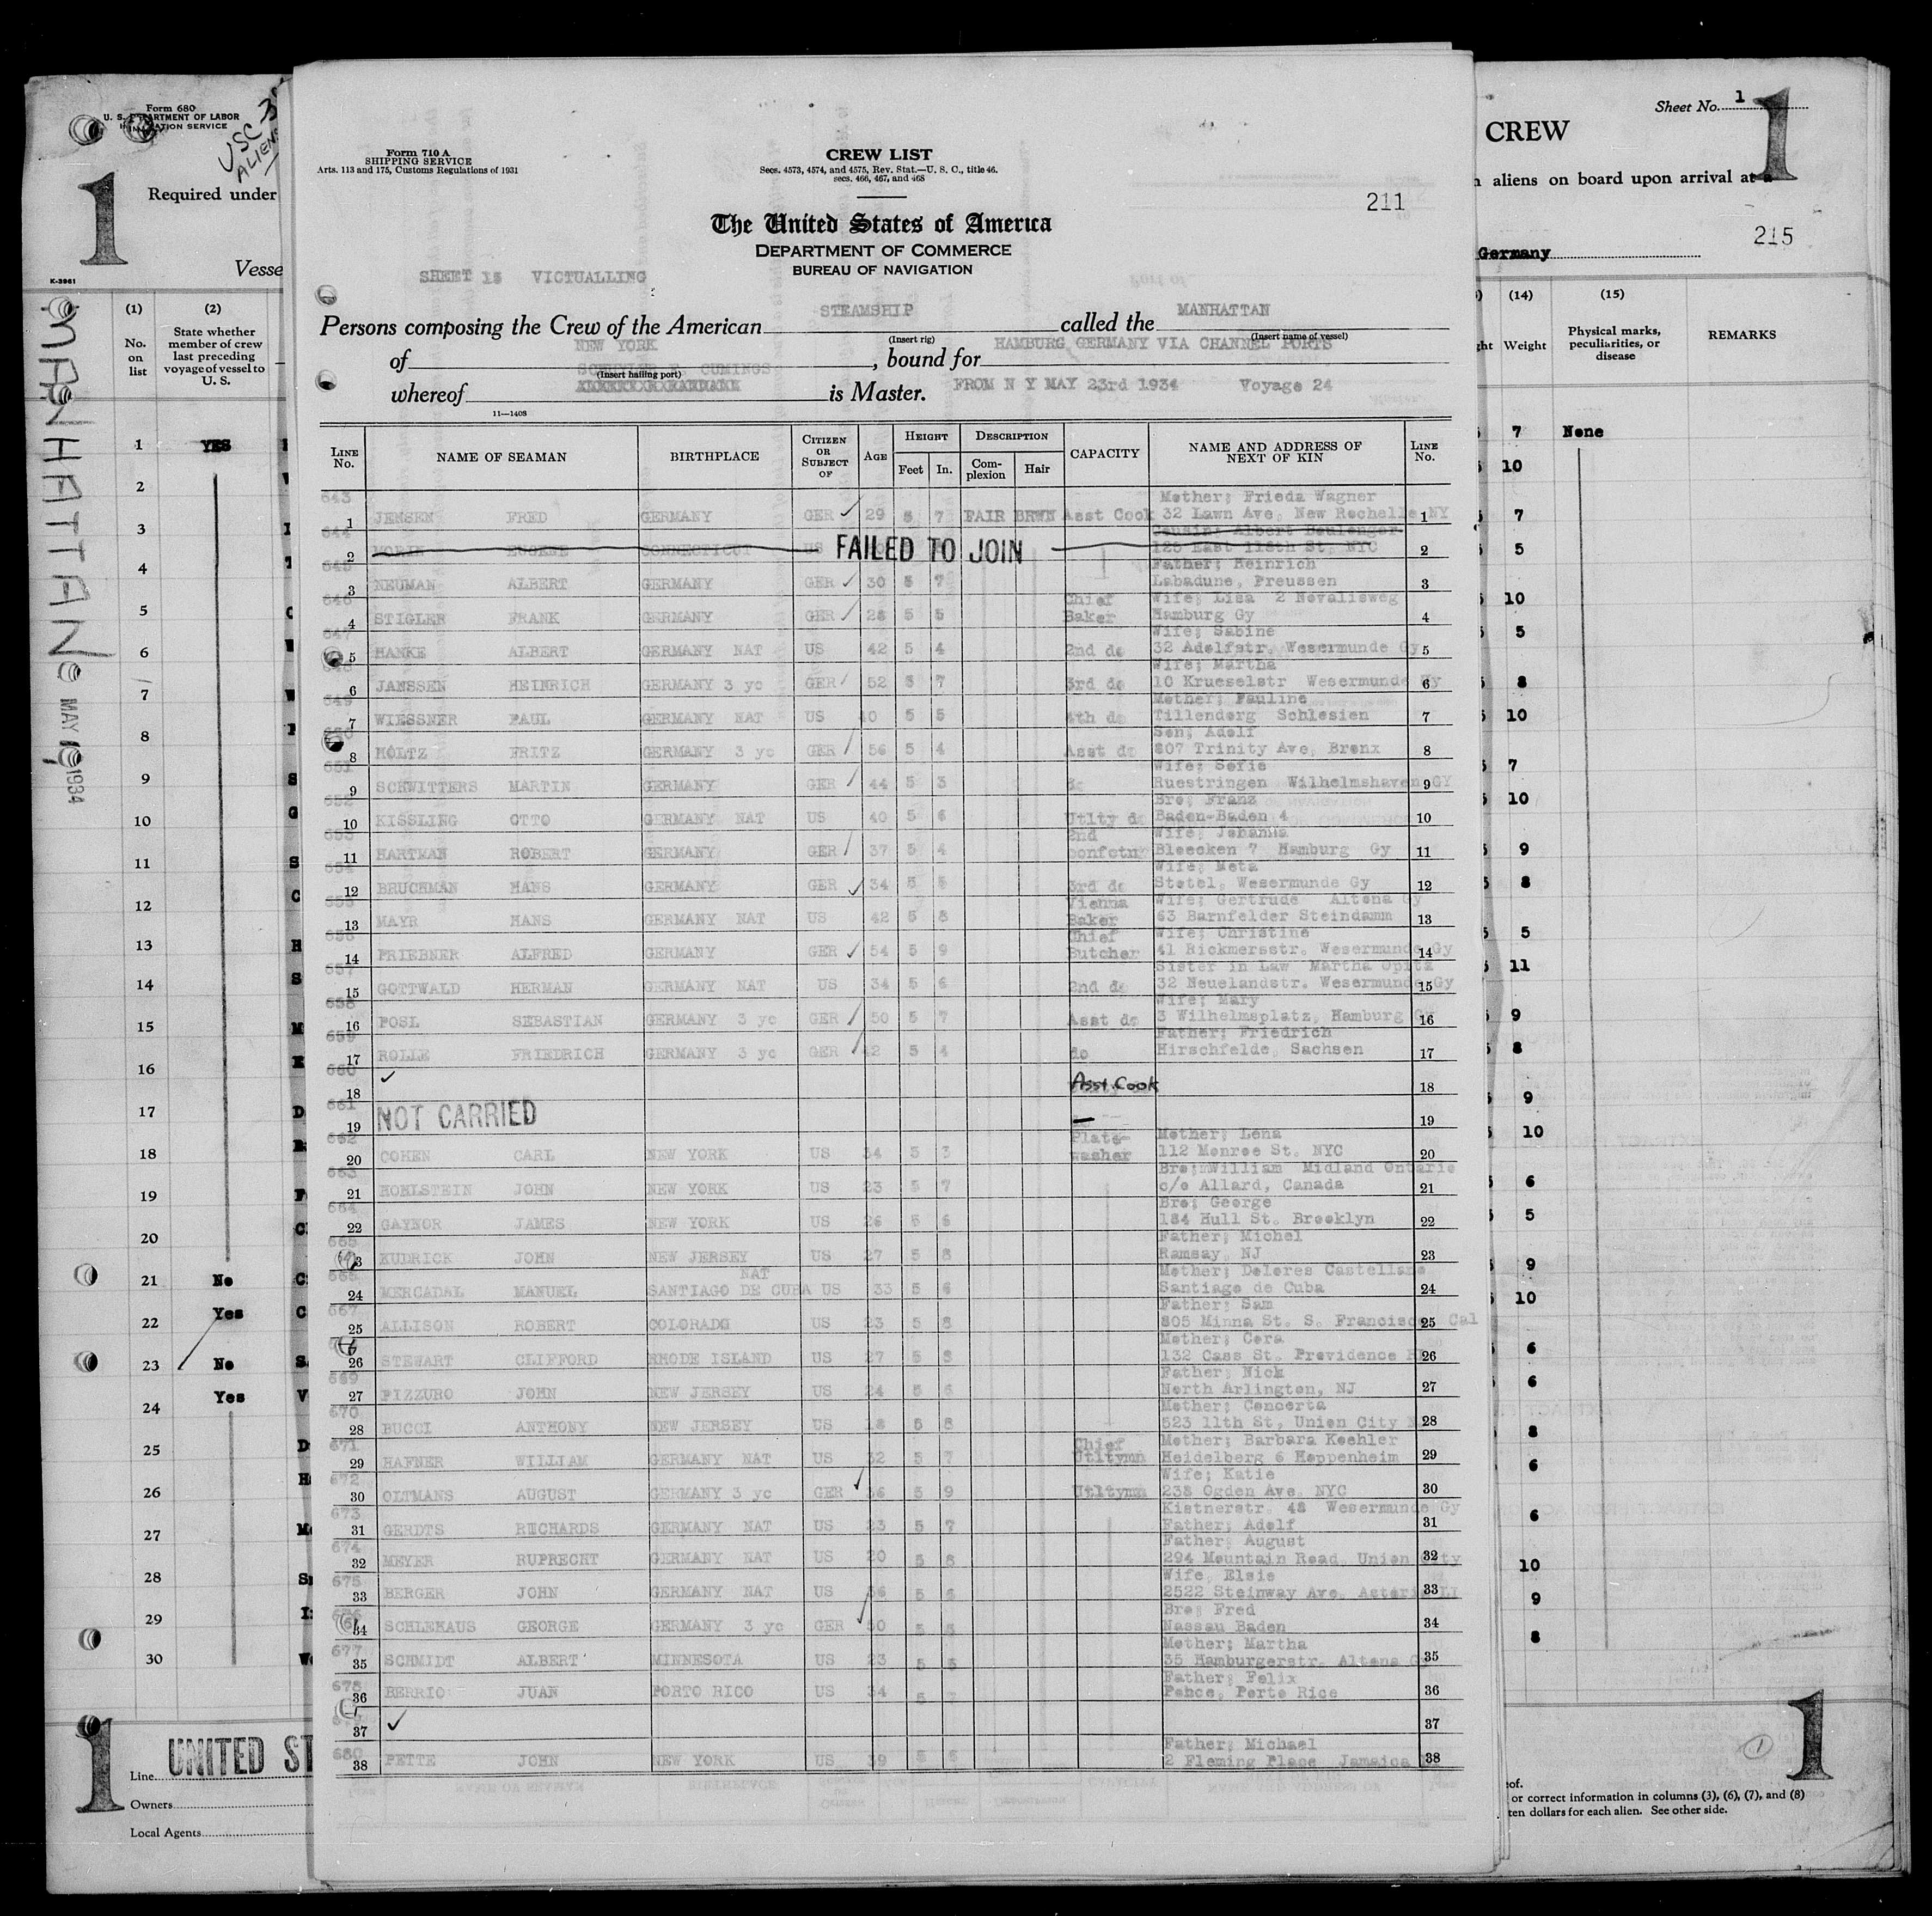 Form 680
U. S. DEPARTMENT OF LABOR
IMMIGRATION SERVICE
USC 3
ALIENS
1
Required under
Vesse
K-3961
MANHATTAN
MAY 1934
(1) (2)
No. on list
State whether member of crew last preceding voyage of vessel to U. S.
1 YES
2
3
4
5
6
7
8
9
10
11
12
13
14
15
16
17
18
19
20
21 No
22 Yes
23 No
24 Yes
25
26
27
28
29
30
1
Line UNITED ST
Owners
Local Agents
Form 710 A
SHIPPING SERVICE
Arts. 113 and 175, Customs Regulations of 1931
CREW LIST
Secs. 4573, 4574, and 4575, Rev. Stat.—U. S. C., title 46.
secs. 466, 467, and 468
211
The United States of America
DEPARTMENT OF COMMERCE
BUREAU OF NAVIGATION
SHEET 15 VICTUALLING
Persons composing the Crew of the American STEAMSHIP called the MANHATTAN
(Insert rig) (Insert name of vessel)
of NEW YORK, bound for HAMBURG GERMANY VIA CHANNEL PORTS
(Insert hailing port)
CUMINGS
whereof is Master. FROM N Y MAY 23rd 1934 Voyage 24
11—1408
LINE No. NAME OF SEAMAN BIRTHPLACE CITIZEN OR SUBJECT OF AGE HEIGHT Feet In. DESCRIPTION Complexion Hair CAPACITY NAME AND ADDRESS OF NEXT OF KIN LINE No.
643 Mother; Frieda Wagner
1 JENSEN FRED GERMANY GER 29 5 7 FAIR BRWN Asst Cook 32 Lawn Ave. New Rochelle NY 1
644 Cousin; Albert Boulenger
2 EUGENE CONNECTICUT US FAILED TO JOIN 125 East 118th St. NYC 2
645 Father; Heinrich
3 NEUMAN ALBERT GERMANY GER 30 5 7 Labadune, Preussen 3
646 Chief Wife; Lisa 2 Novalisweg
4 STIGLER FRANK GERMANY GER 28 5 5 Baker Hamburg Gy 4
647 Wife; Sabine
5 HANKE ALBERT GERMANY NAT US 42 5 4 2nd do 32 Adolfstr. Wesermunde Gy 5
648 Wife; Martha
6 JANSSEN HEINRICH GERMANY 3 yc GER 52 5 7 3rd do 10 Krueselstr Wesermunde Gy 6
649 Mother; Pauline
7 WIESSNER PAUL GERMANY NAT US 40 5 5 4th do Tillendorg Schlesien 7
650 Son; Adolf
8 HOLTZ FRITZ GERMANY 3 yc GER 56 5 4 Asst do 807 Trinity Ave, Bronx 8
651 Wife; Sofie
9 SCHWITTERS MARTIN GERMANY GER 44 5 3 do Ruestringen Wilhelmshaven GY 9
652 Bro; Franz
10 KISSLING OTTO GERMANY NAT US 40 5 6 Utlty do Baden-Baden 4 10
653 2nd Wife; Johanna
11 HARTMAN ROBERT GERMANY GER 37 5 4 confctn Bleecken 7 Hamburg Gy 11
654 Wife; Meta
12 BRUCHMAN HANS GERMANY GER 34 5 5 3rd do Stotel, Wesermunde Gy 12
655 Vienna Wife; Gertrude Altona Gy
13 MAYR HANS GERMANY NAT US 42 5 8 Baker 63 Barnfelder Steindamm 13
656 Chief Wife; Christine
14 PRIEBNER ALFRED GERMANY GER 54 5 9 Butcher 41 Rickmersstr. Wesermunde Gy 14
657 Sister in Law Martha Opitz
15 GOTTWALD HERMAN GERMANY NAT US 34 5 6 2nd do 32 Neuelandstr. Wesermunde Gy 15
658 Wife; Mary
16 POSL SEBASTIAN GERMANY 3 yc GER 50 5 7 Asst do 3 Wilhelmsplatz, Hamburg Gy 16
659 Father; Friedrich
17 ROLLE FRIEDRICH GERMANY 3 yc GER 42 5 4 do Hirschfelde, Sachsen 17
660
18 Asst. Cook 18
661
19 NOT CARRIED 19
662 Plate- Mother; Lena
20 COHEN CARL NEW YORK US 34 5 3 washer 112 Monroe St. NYC 20
663 Bro; William Midland Ontario
21 HOHLSTEIN JOHN NEW YORK US 23 5 7 c/o Allard, Canada 21
664 Bro; George
22 GAYNOR JAMES NEW YORK US 26 5 6 184 Hull St. Brooklyn 22
665 Father; Michel
23 KUDRICK JOHN NEW JERSEY US 27 5 8 Ramsay, NJ 23
666 NAT Mother; Dolores Castellano
24 MERCADAL MANUEL SANTIAGO DE CUBA US 33 5 6 Santiago de Cuba 24
667 Father; Sam
25 ALLISON ROBERT COLORADO US 23 5 8 805 Minna St. S. Francisco Cal 25
Mother; Cora
26 STEWART CLIFFORD RHODE ISLAND US 27 5 8 132 Cass St. Providence 26
669 Father; Nick
27 PIZZURO JOHN NEW JERSEY US 24 5 6 North Arlington, NJ 27
670 Mother; Concerta
28 BUCCI ANTHONY NEW JERSEY US 18 5 8 523 11th St, Union City 28
671 Chief Mother; Barbara Koehler
29 HAFNER WILLIAM GERMANY NAT US 32 5 7 Utltymn Heidelberg 6 Heppenheim 29
672 Wife; Katie
30 OLTMANS AUGUST GERMANY 3 yc GER 36 5 9 Utltymn 238 Ogden Ave. NYC 30
673 Kistnerstr. 48 Wesermunde Gy
31 GERDTS RICHARDS GERMANY NAT US 23 5 7 Father; Adolf 31
674 Father; August
32 MEYER RUPRECHT GERMANY NAT US 20 5 8 294 Mountain Road, Union City 32
675 Wife, Elsie
33 BERGER JOHN GERMANY NAT US 36 5 6 2522 Steinway Ave. Astoria LI 33
676 Bro; Fred
34 SCHLEHAUS GEORGE GERMANY 3 yc GER 50 5 5 Nassau Baden 34
677 Mother; Martha
35 SCHMIDT ALBERT MINNESOTA US 23 5 5 35 Hamburgerstr. Altona 35
678 Father; Felix
36 BERRIO JUAN PORTO RICO US 34 5 7 Ponce, Porto Rico 36
37 37
680 Father; Michael
38 PETTE JOHN NEW YORK US 39 5 6 2 Fleming Place Jamaica 38
Sheet No. 1
1
CREW
aliens on board upon arrival at a
215
Germany
(14) (15)
Weight Physical marks, peculiarities, or disease REMARKS
7 None
10
7
5
10
5
8
10
7
10
9
8
5
11
9
8
9
10
6
5
9
10
6
6
8
6
6
10
9
8
1
1
or correct information in columns (3), (6), (7), and (8)
ten dollars for each alien. See other side.